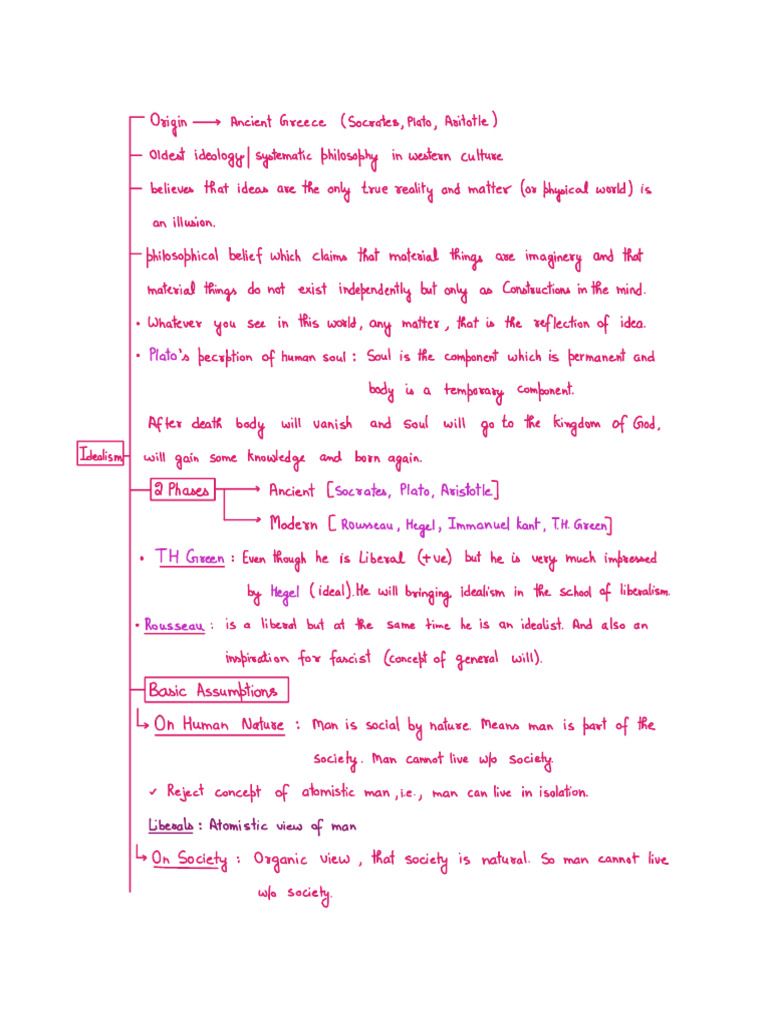 Origin → Ancient Greece (Socrates, Plato, Aritotle)
Oldest ideology | systematic philosophy in western culture
believes that ideas are the only true reality and matter (or physical world) is
an illusion.
philosophical belief which claims that material things are imaginery and that
material things do not exist independently but only as Constructions in the mind.
• Whatever you see in this world, any matter, that is the reflection of idea.
• Plato's pecrption of human soul : Soul is the component which is permanent and
body is a temporary component.
After death body will vanish and soul will go to the kingdom of God,
Idealism
will gain some knowledge and born again.
2 Phases → Ancient [Socrates, Plato, Aristotle]
→ Modern [Rousseau, Hegel, Immanuel kant, T.H. Green]
• TH Green : Even though he is Liberal (+ve) but he is very much impressed
by Hegel (ideal). He will bringing idealism in the school of liberalism.
• Rousseau : is a liberal but at the same time he is an idealist. And also an
inspiration for fascist (concept of general will).
Basic Assumptions
↳ On Human Nature : Man is social by nature. Means man is part of the
society. Man cannot live w/o society.
✓ Reject concept of atomistic man, i.e., man can live in isolation.
Liberals : Atomistic view of man
↳ On Society : Organic view, that society is natural. So man cannot live
w/o society.